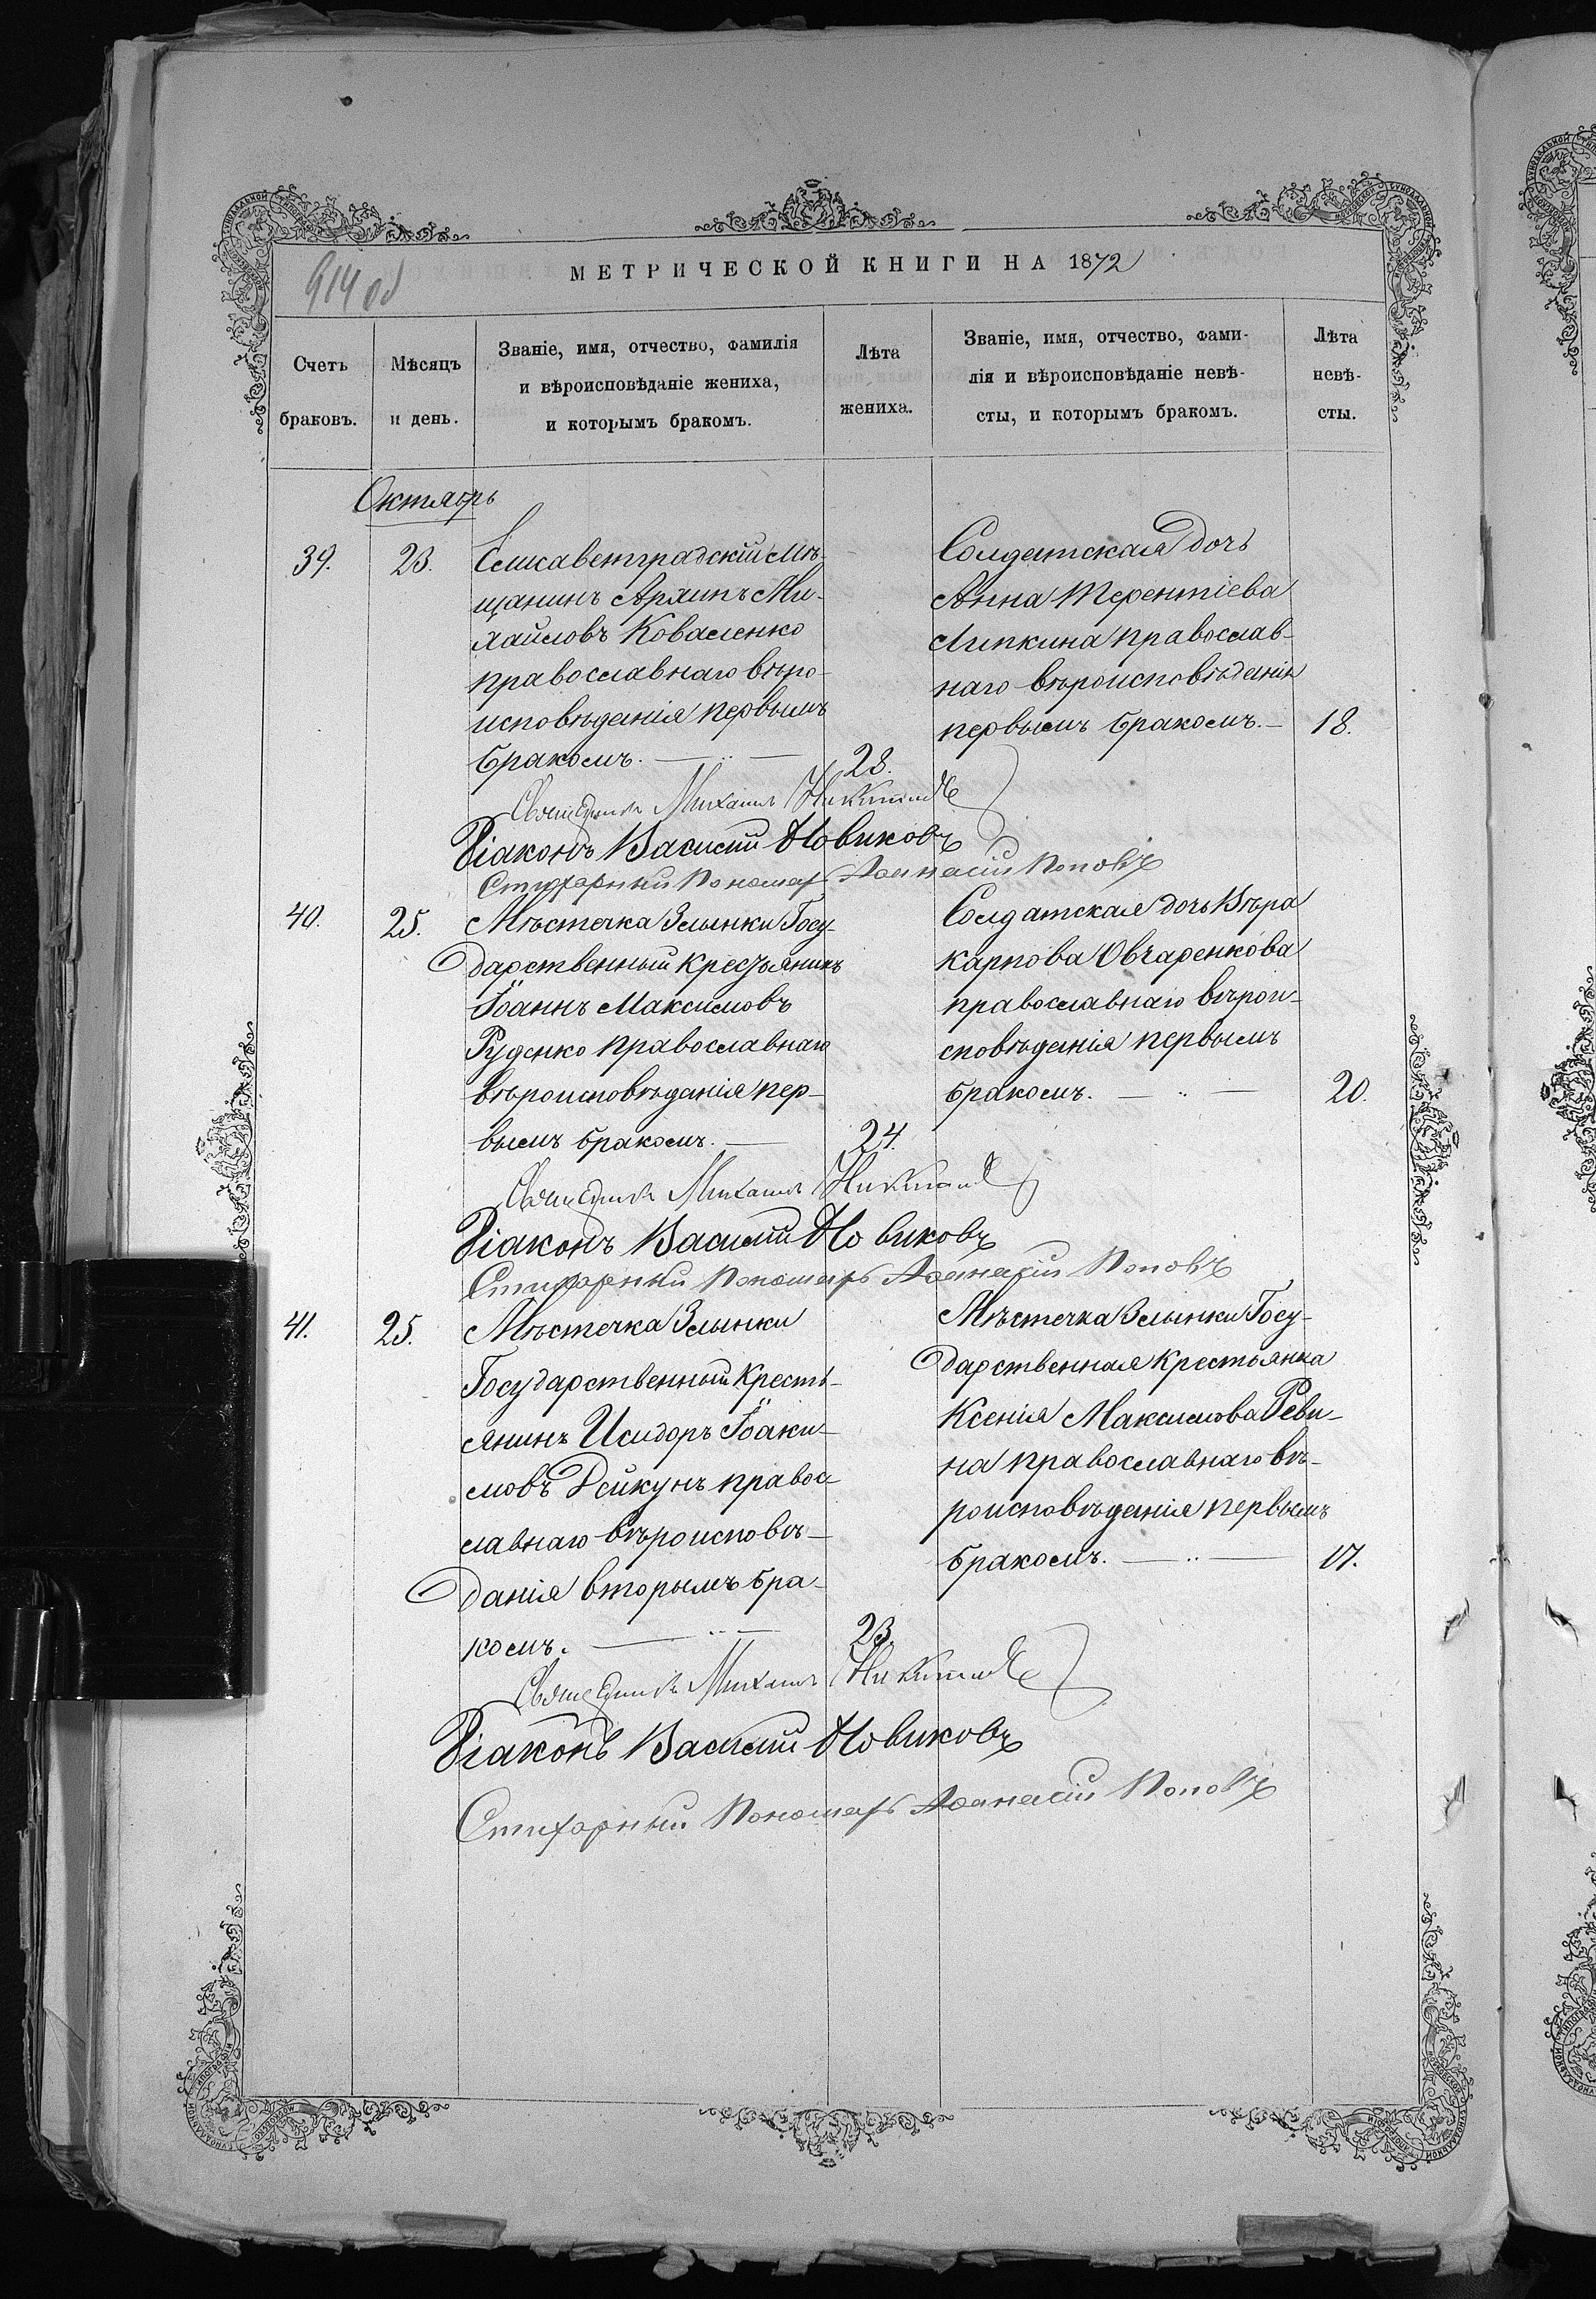 914 об
МЕТРИЧЕСКОЙ КНИГИ НА 1872
Счетъ браковъ.
Мѣсяцъ и день.
Званіе, имя, отчество, фамилія
и вѣроисповѣданіе жениха,
и которымъ бракомъ.
Лѣта жениха.
Званіе, имя, отчество, фами-
лія и вѣроисповѣданіе невѣ-
сты, и которымъ бракомъ.
Лѣта невѣ-
сты.
Октябрь
39.
23.
Елисаветградскій мѣ-
щанинъ Архипъ Ми-
хайловъ Коваленко
православнаго вѣро-
исповѣданія первымъ
бракомъ.
28.
Солдатская дочь
Анна Терентіева
Липкина православ-
наго вѣроисповѣданія
первымъ бракомъ.
18.
Священникъ Михаилъ
Діаконъ Василій Новиковъ
Стихарный Пономарь Аѳанасій Поповъ
40.
25.
Мѣстечка Злынки Госу-
дарственный крестьянинъ
Іоаннъ Максимовъ
Руденко православнаго
вѣроисповѣданія пер-
вымъ бракомъ.
24.
Солдатская дочь Вѣра
Карпова Овчаренкова
православнаго вѣрои-
сповѣданія первымъ
бракомъ.
20.
Священникъ Михаилъ
Діаконъ Василій Новиковъ
Стихарный Пономарь Аѳанасій Поповъ
41.
25.
Мѣстечка Злынки
Государственный кресть-
янинъ Исидоръ Іоаки-
мовъ Дейкунъ правос-
лавнаго вѣроисповѣ-
данія вторымъ бра-
комъ.
23.
Мѣстечка Злынки Госу-
дарственная крестьянка
Ксенія Максимова Реви-
на православнаго вѣ-
роисповѣданія первымъ
бракомъ.
17.
Священникъ Михаилъ
Діаконъ Василій Новиковъ
Стихарный Пономарь Аѳанасій Поповъ